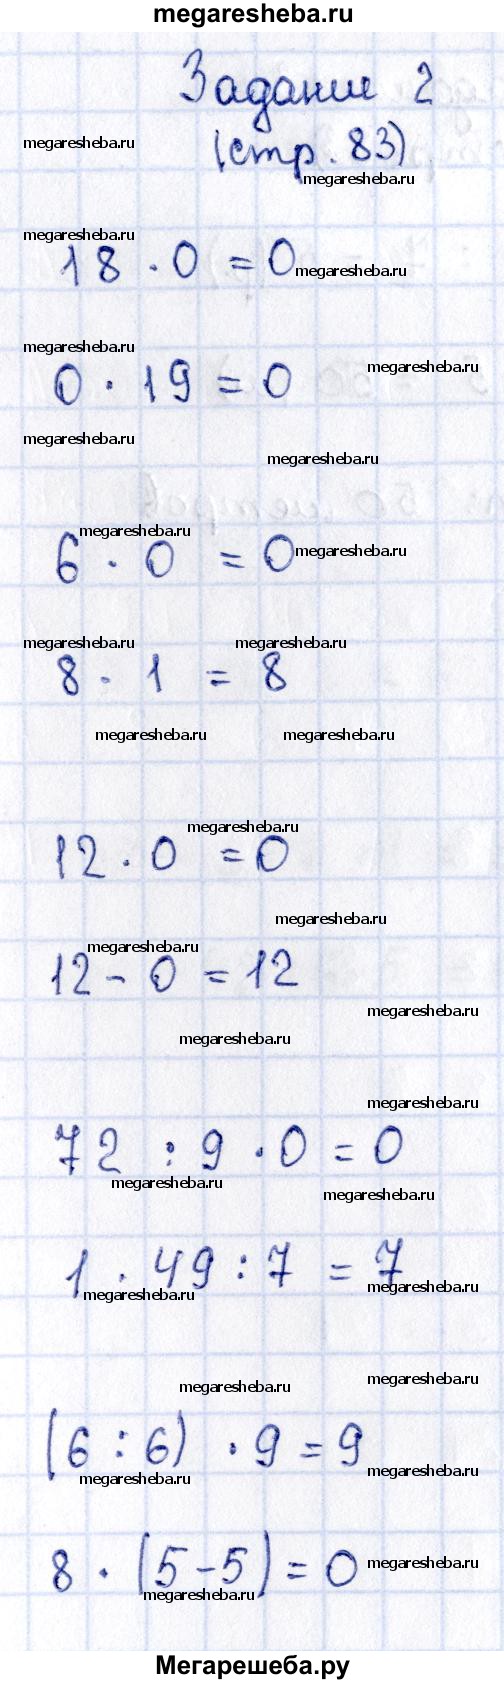 megaresheba.ru
Задание 2
megaresheba.ru
(стр. 83)
megaresheba.ru
megaresheba.ru
18 · 0 = 0
megaresheba.ru
megaresheba.ru
megaresheba.ru
0 · 19 = 0
megaresheba.ru
megaresheba.ru
megaresheba.ru
6 · 0 = 0
megaresheba.ru
megaresheba.ru megaresheba.ru
8 · 1 = 8
megaresheba.ru megaresheba.ru
megaresheba.ru
12 · 0 = 0
megaresheba.ru
megaresheba.ru
12 - 0 = 12
megaresheba.ru
megaresheba.ru
megaresheba.ru
72 : 9 · 0 = 0
megaresheba.ru
megaresheba.ru
1 · 49 : 7 = 7
megaresheba.ru
megaresheba.ru
megaresheba.ru
megaresheba.ru
(6 : 6) · 9 = 9
megaresheba.ru
megaresheba.ru
8 · (5 - 5) = 0
megaresheba.ru
megaresheba.ru
Мегарешеба.ру